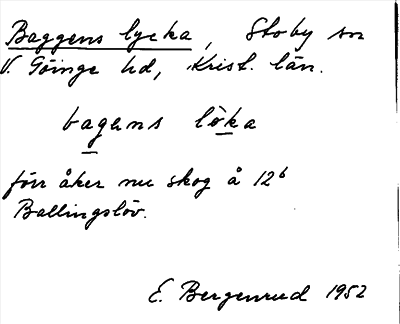 Baggens lycka, Stoby sn
V. Göinge hd, Krist. län.
bagens löka
förr åker nu skog å 12⁶
Ballingslöv.
E. Bergenrud 1952